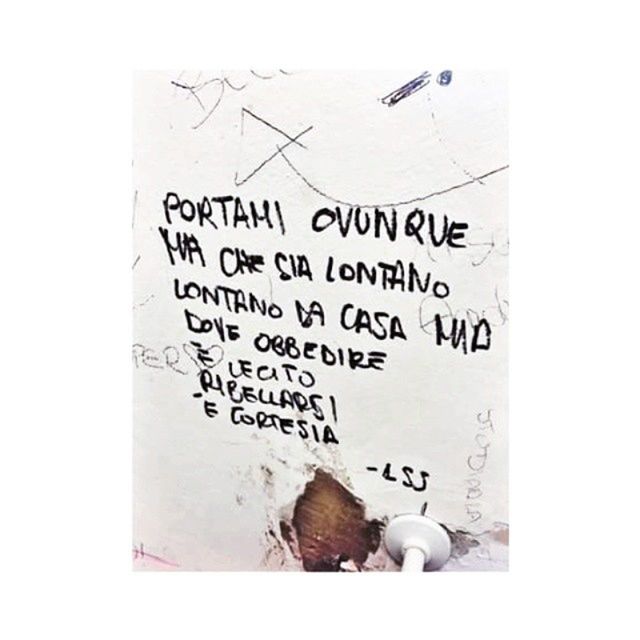 PORTAMI OVUNQUE
MA CHE SIA LONTANO
LONTANO DA CASA MIA
DOVE OBBEDIRE
È LECITO
RIBELLARSI
È CORTESIA
PER